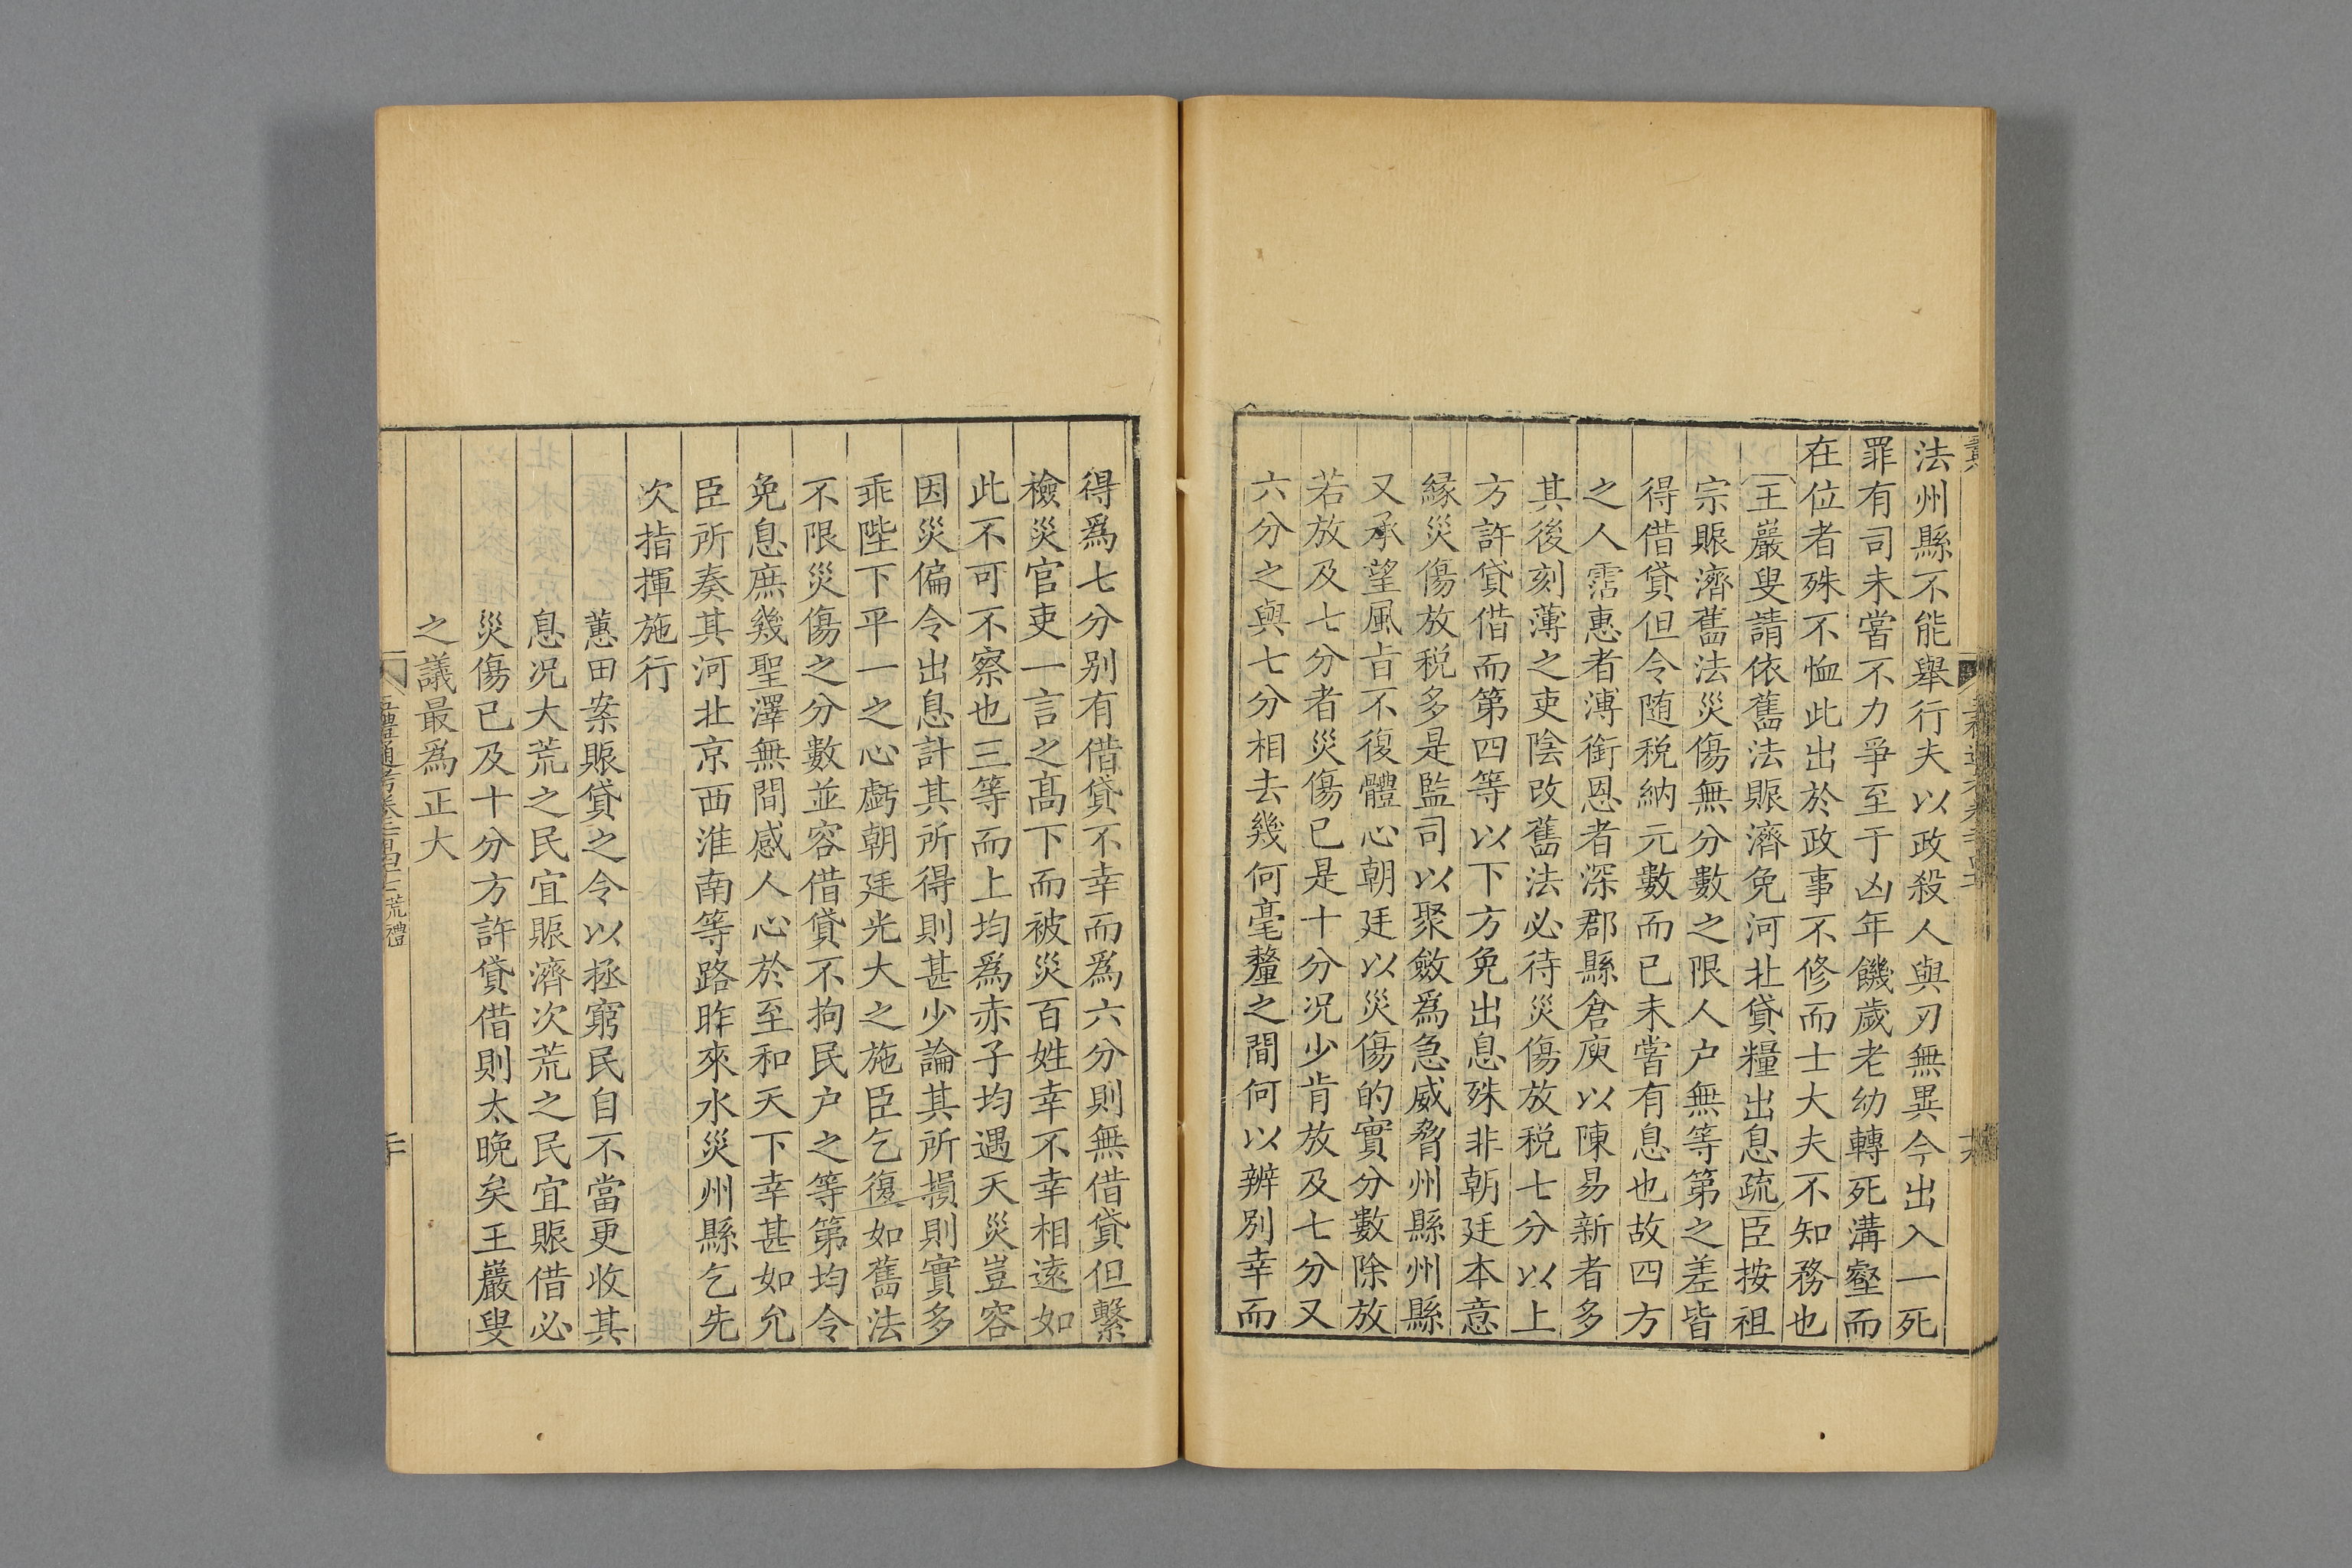 法州縣不能舉行夫以政殺人與刃無異今出入一死
罪有司未嘗不力爭至于凶年饑歲老幼轉死溝壑而
在位者殊不恤此出於政事不修而士大夫不知務也
王巖叟請依舊法賑濟免河北貸糧出息疏臣按祖
宗賑濟舊法災傷無分數之限人户無等第之差皆
得借貸但令随税納元數而已未嘗有息也故四方
之人霑惠者溥銜恩者深郡縣倉庾以陳易新者多
其後刻薄之吏陰改舊法必待災傷放税七分以上
方許貸借而第四等以下方免出息殊非朝廷本意
緣災傷放税多是監司以聚斂爲急威脅州縣州縣
又承望風㫖不復體心朝廷以災傷的實分數除放
若放及七分者災傷已是十分况少肯放及七分又
六分之與七分相去幾何毫釐之間何以辨别幸而
得爲七分别有借貸不幸而爲六分則無借貸但繫
檢災官吏一言之髙下而被災百姓幸不幸相逺如
此不可不察也三等而上均爲赤子均遇天災豈容
因災偏令出息計其所得則甚少論其所損則實多
乖陛下平一之心虧朝廷光大之施臣乞復如舊法
不限災傷之分數並容借貸不拘民户之等第均令
免息庶幾聖澤無間感人心於至和天下幸甚如允
臣所奏其河北京西淮南等路昨來水災州縣乞先
次指揮施行
蕙田案賑貸之令以拯窮民自不當更收其
息况大荒之民宜賑濟次荒之民宜賑借必
災傷已及十分方許貸借則太晚矣王巖叟
之議最爲正大
五禮通考卷二百四十七荒禮